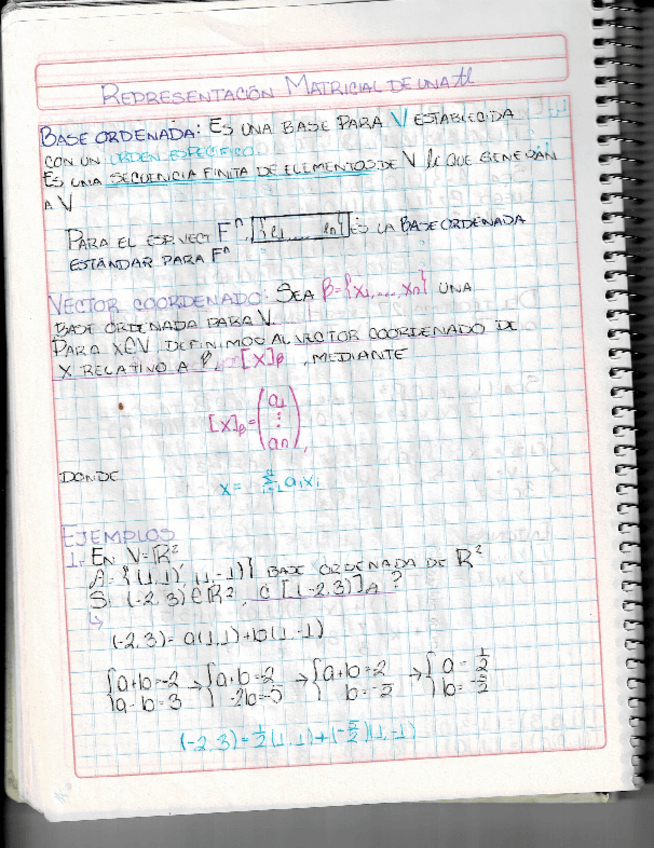 REPRESENTACIÓN MATRICIAL DE UNA tl
BASE ORDENADA: ES UNA BASE PARA V ESTABLECIDA
CON UN ORDEN ESPECÍFICO.
ES UNA SECUENCIA FINITA DE ELEMENTOS DE V lc QUE GENERAN
A V
PARA EL ESP. VECT F^n, {e1, ..., en} ES LA BASE ORDENADA
ESTÁNDAR PARA F^n
VECTOR COORDENADO: SEA β={x1,...,xn} UNA
BASE ORDENADA PARA V.
PARA X∈V DEFINIMOS AL VECTOR COORDENADO DE
X RELATIVO A β, [X]β, MEDIANTE
[X]β = (a1 ⋮ an),
DONDE
x = Σ aixi
EJEMPLOS
1. EN V=R²,
A={(1,1), (1,-1)} BASE ORDENADA DE R²
Si (-2,3)∈R², ¿[(-2,3)]A?
↳
(-2,3)= a(1,1)+b(1,-1)
{a+b=-2 → {a+b=2 → {a+b=2 → {a=1/2
{a-b=3 { -2b=5 { b=-5/2 { b=-5/2
(-2,3)=1/2(1,1)+(-5/2)(1,-1)